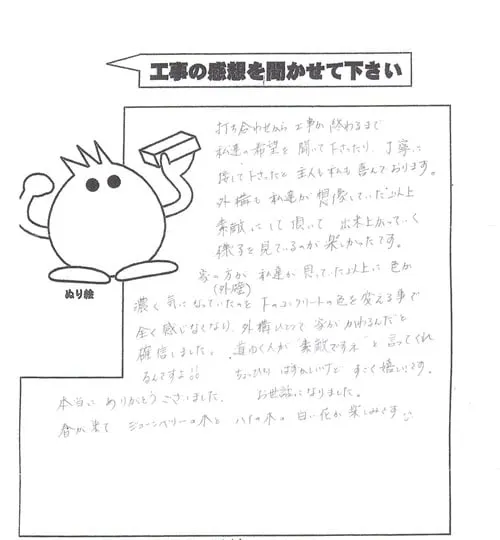 工事の感想を聞かせて下さい
打ち合わせから工事が終わるまで
私達の希望を聞いて下さったり、丁寧に
接して下さったと主人も私も喜んでおります。
外構も私達が想像していた以上
素敵にして頂いて 出来上がっていく
様子を見ているのが楽しかったです。
家の方が私達が思っていた以上に色が
(外壁)
濃く気になっていたのと下のコンクリートの色を変える事で
全く感じなくなり、外構ひとつで家がかわるんだと
確信しました。 道ゆく人が "素敵ですネ" と言ってくれ
るんですよ!! ちょっぴりはずかしいけど すごく嬉しいです。
本当に ありがとうございました。 お世話になりました。
春が来て ジューンベリーの木と ハナの木の 白い花が楽しみです
ぬり絵